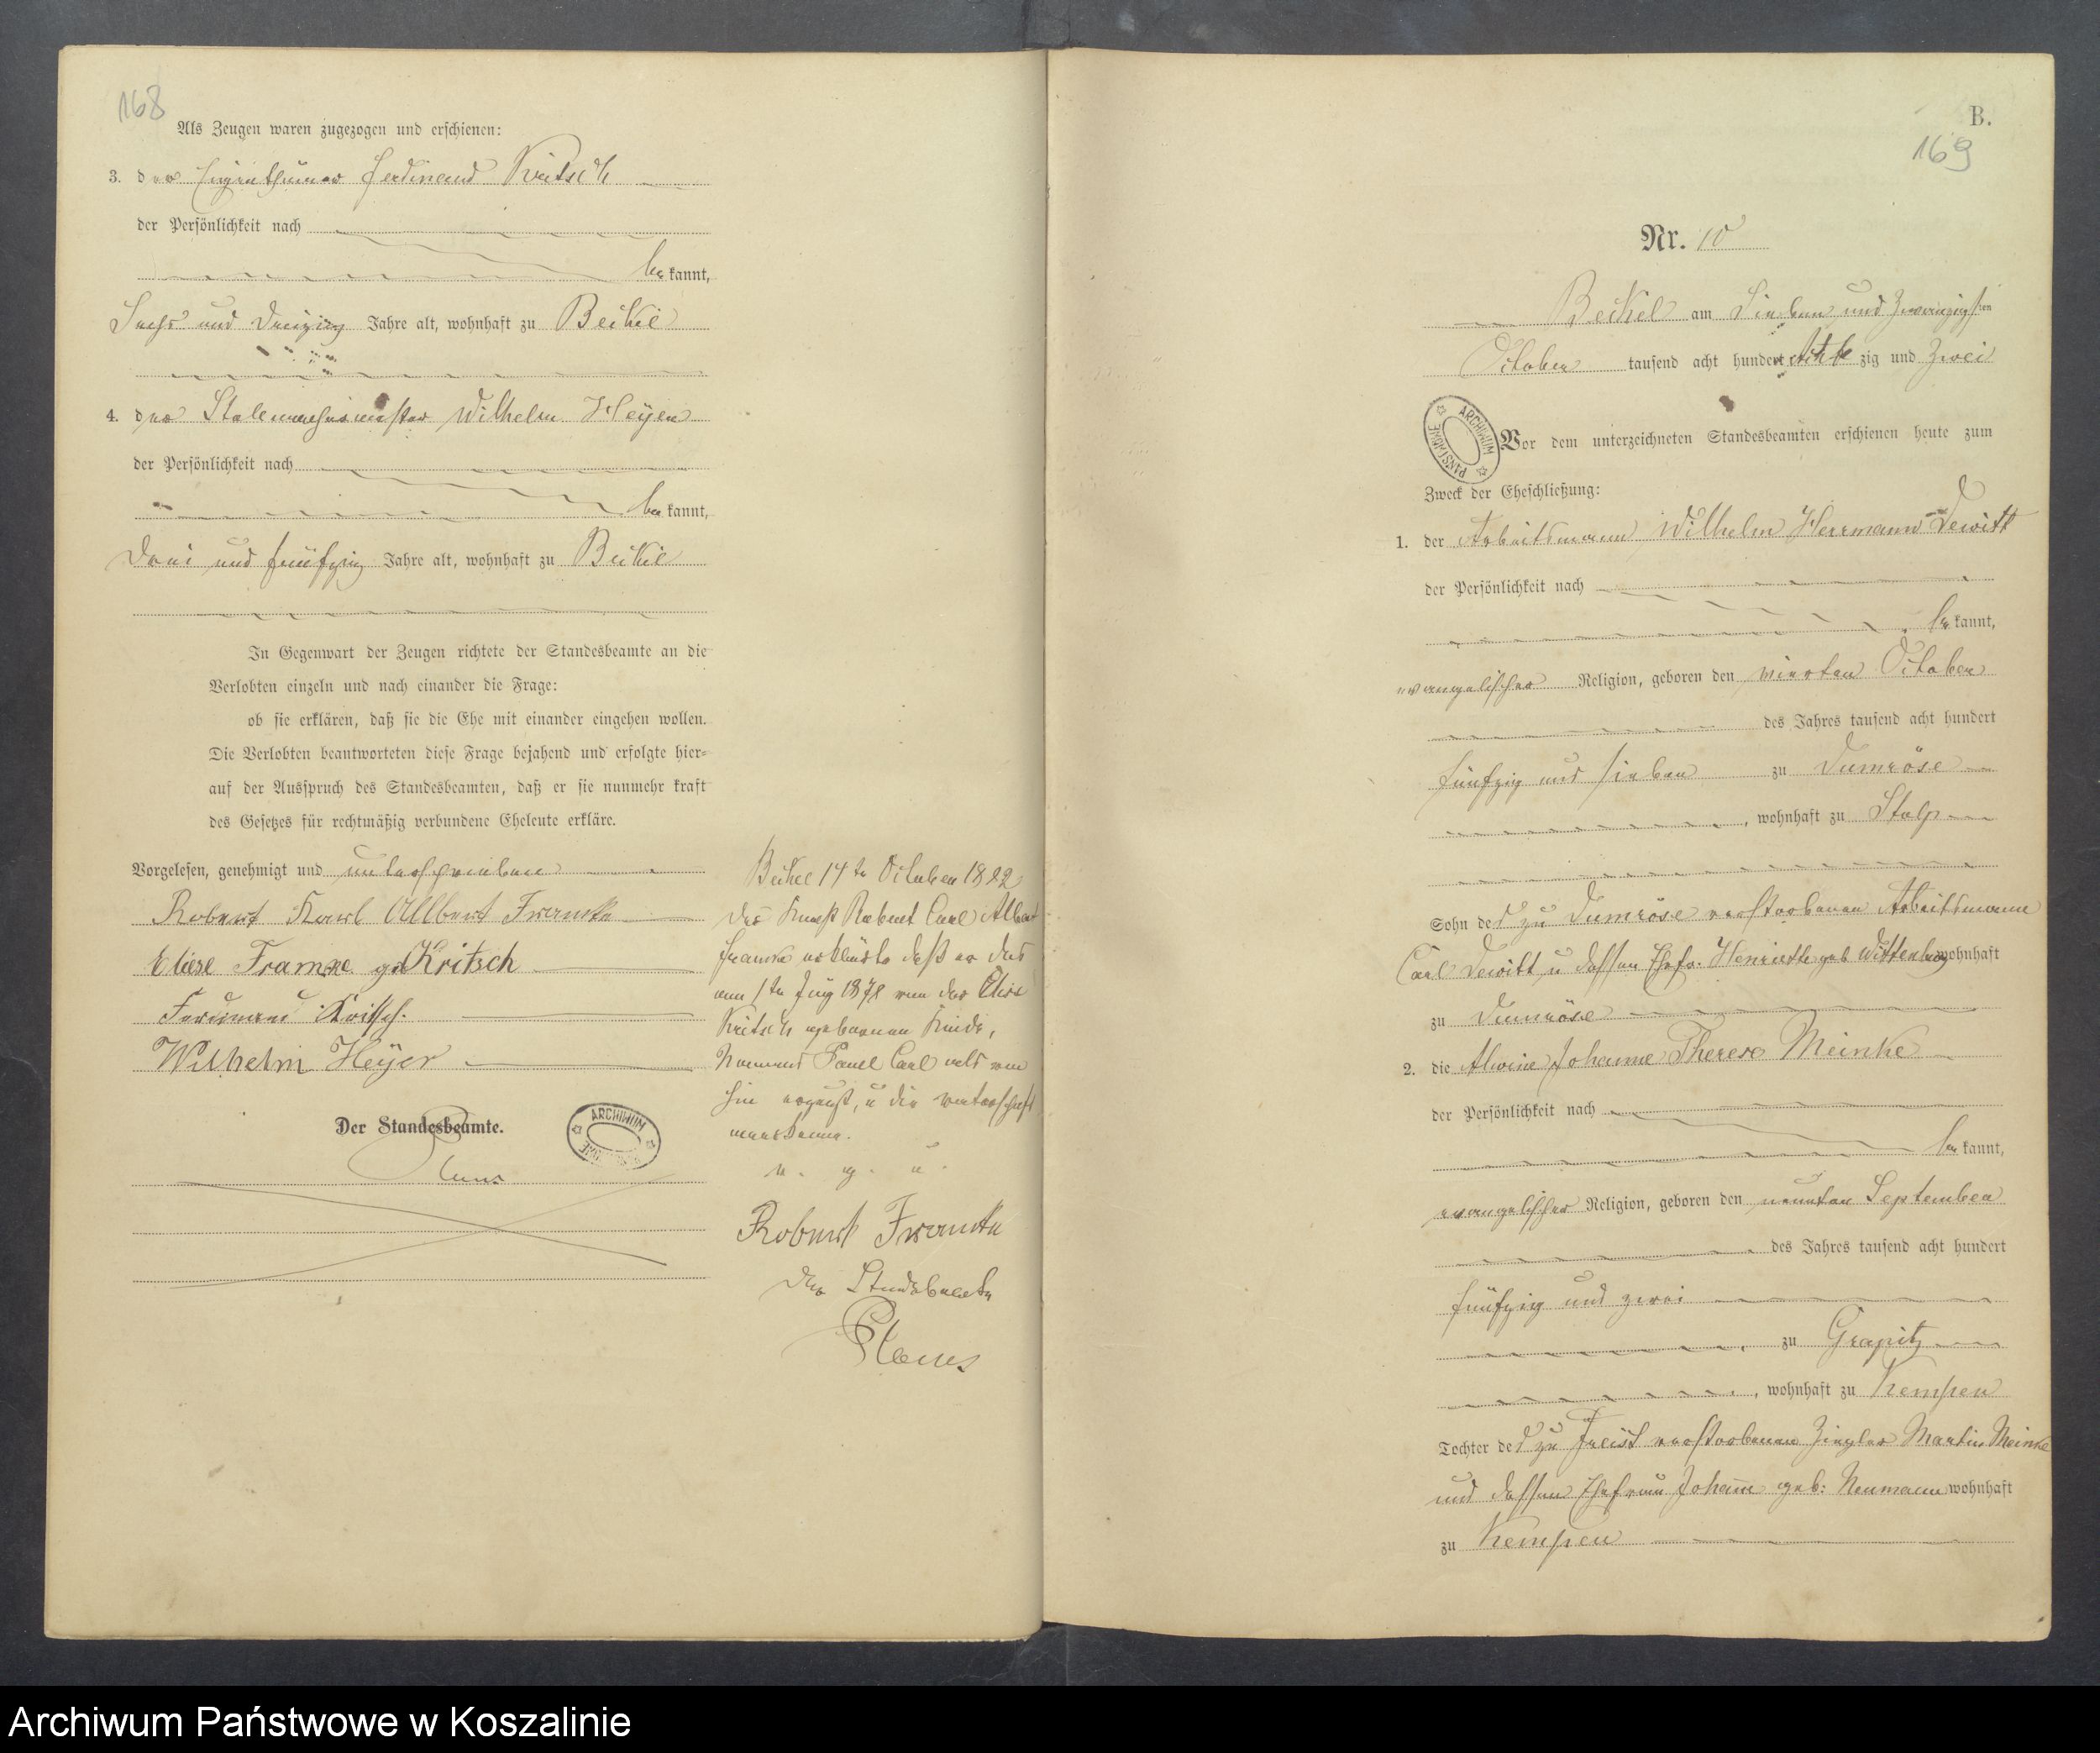 168
Als Zeugen waren zugezogen und erschienen:
3. der Eigenthümer Ferdinand Kritsch
der Persönlichkeit nach
be kannt,
Sechs und Dreizig Jahre alt, wohnhaft zu Beckel
4. der Stellmachermeister Wilhelm Heyer
der Persönlichkeit nach
be kannt,
Drei und fünfzig Jahre alt, wohnhaft zu Beckel
In Gegenwart der Zeugen richtete der Standesbeamte an die
Verlobten einzeln und nach einander die Frage:
ob sie erklären, daß sie die Ehe mit einander eingehen wollen.
Die Verlobten beantworteten diese Frage bejahend und erfolgte hier-
auf der Ausspruch des Standesbeamten, daß er sie nunmehr kraft
des Gesetzes für rechtmäßig verbundene Eheleute erkläre.
Vorgelesen, genehmigt und unterschrieben
Robert Karl Albert Franke
Eliese Franke geb Kritsch
Ferdinand Kritsch.
Wilhelm Heyer
Der Standesbeamte.
ARCHIWUM
Beckel 14te October 1882
Der Knecht Robert Carl Albert
Franke erklärte daß er das
am 1te 18 von der Elise
Kritsch geborenen Kinde,
Namens Paul Carl als von
ihm erzeugt, u die Vaterschaft
anerkenne.
v. g. u.
Robert Franke
Der Standsbeamte
B.
169
Nr. 10
Beckel am Sieben und Zwanzigsten
October tausend acht hundert Acht zig und Zwei
ARCHIWUM PAŃSTWOWE
Vor dem unterzeichneten Standesbeamten erschienen heute zum
Zweck der Eheschließung:
1. der Arbeitsmann Wilhelm Herrmann Dewitt
der Persönlichkeit nach
be kannt,
evangelischer Religion, geboren den vierten October
des Jahres tausend acht hundert
fünfzig und sieben zu Dumröse
, wohnhaft zu Stolp
Sohn des zu Dumröse verstorbenen Arbeitsmann
Carl Dewitt u dessen Ehefr. Henriette geb Wittenberg wohnhaft
zu Dumröse
2. die Alwine Johanne Therese Meinke
der Persönlichkeit nach
be kannt,
evangelischer Religion, geboren den neunten September
des Jahres tausend acht hundert
fünfzig und zwei
zu Grapitz
, wohnhaft zu Kempen
Tochter des zu Freist verstorbenen Ziegler Martin Meinke
und dessen Ehefrau Johanne geb: Neumann wohnhaft
zu Kempen
Archiwum Państwowe w Koszalinie